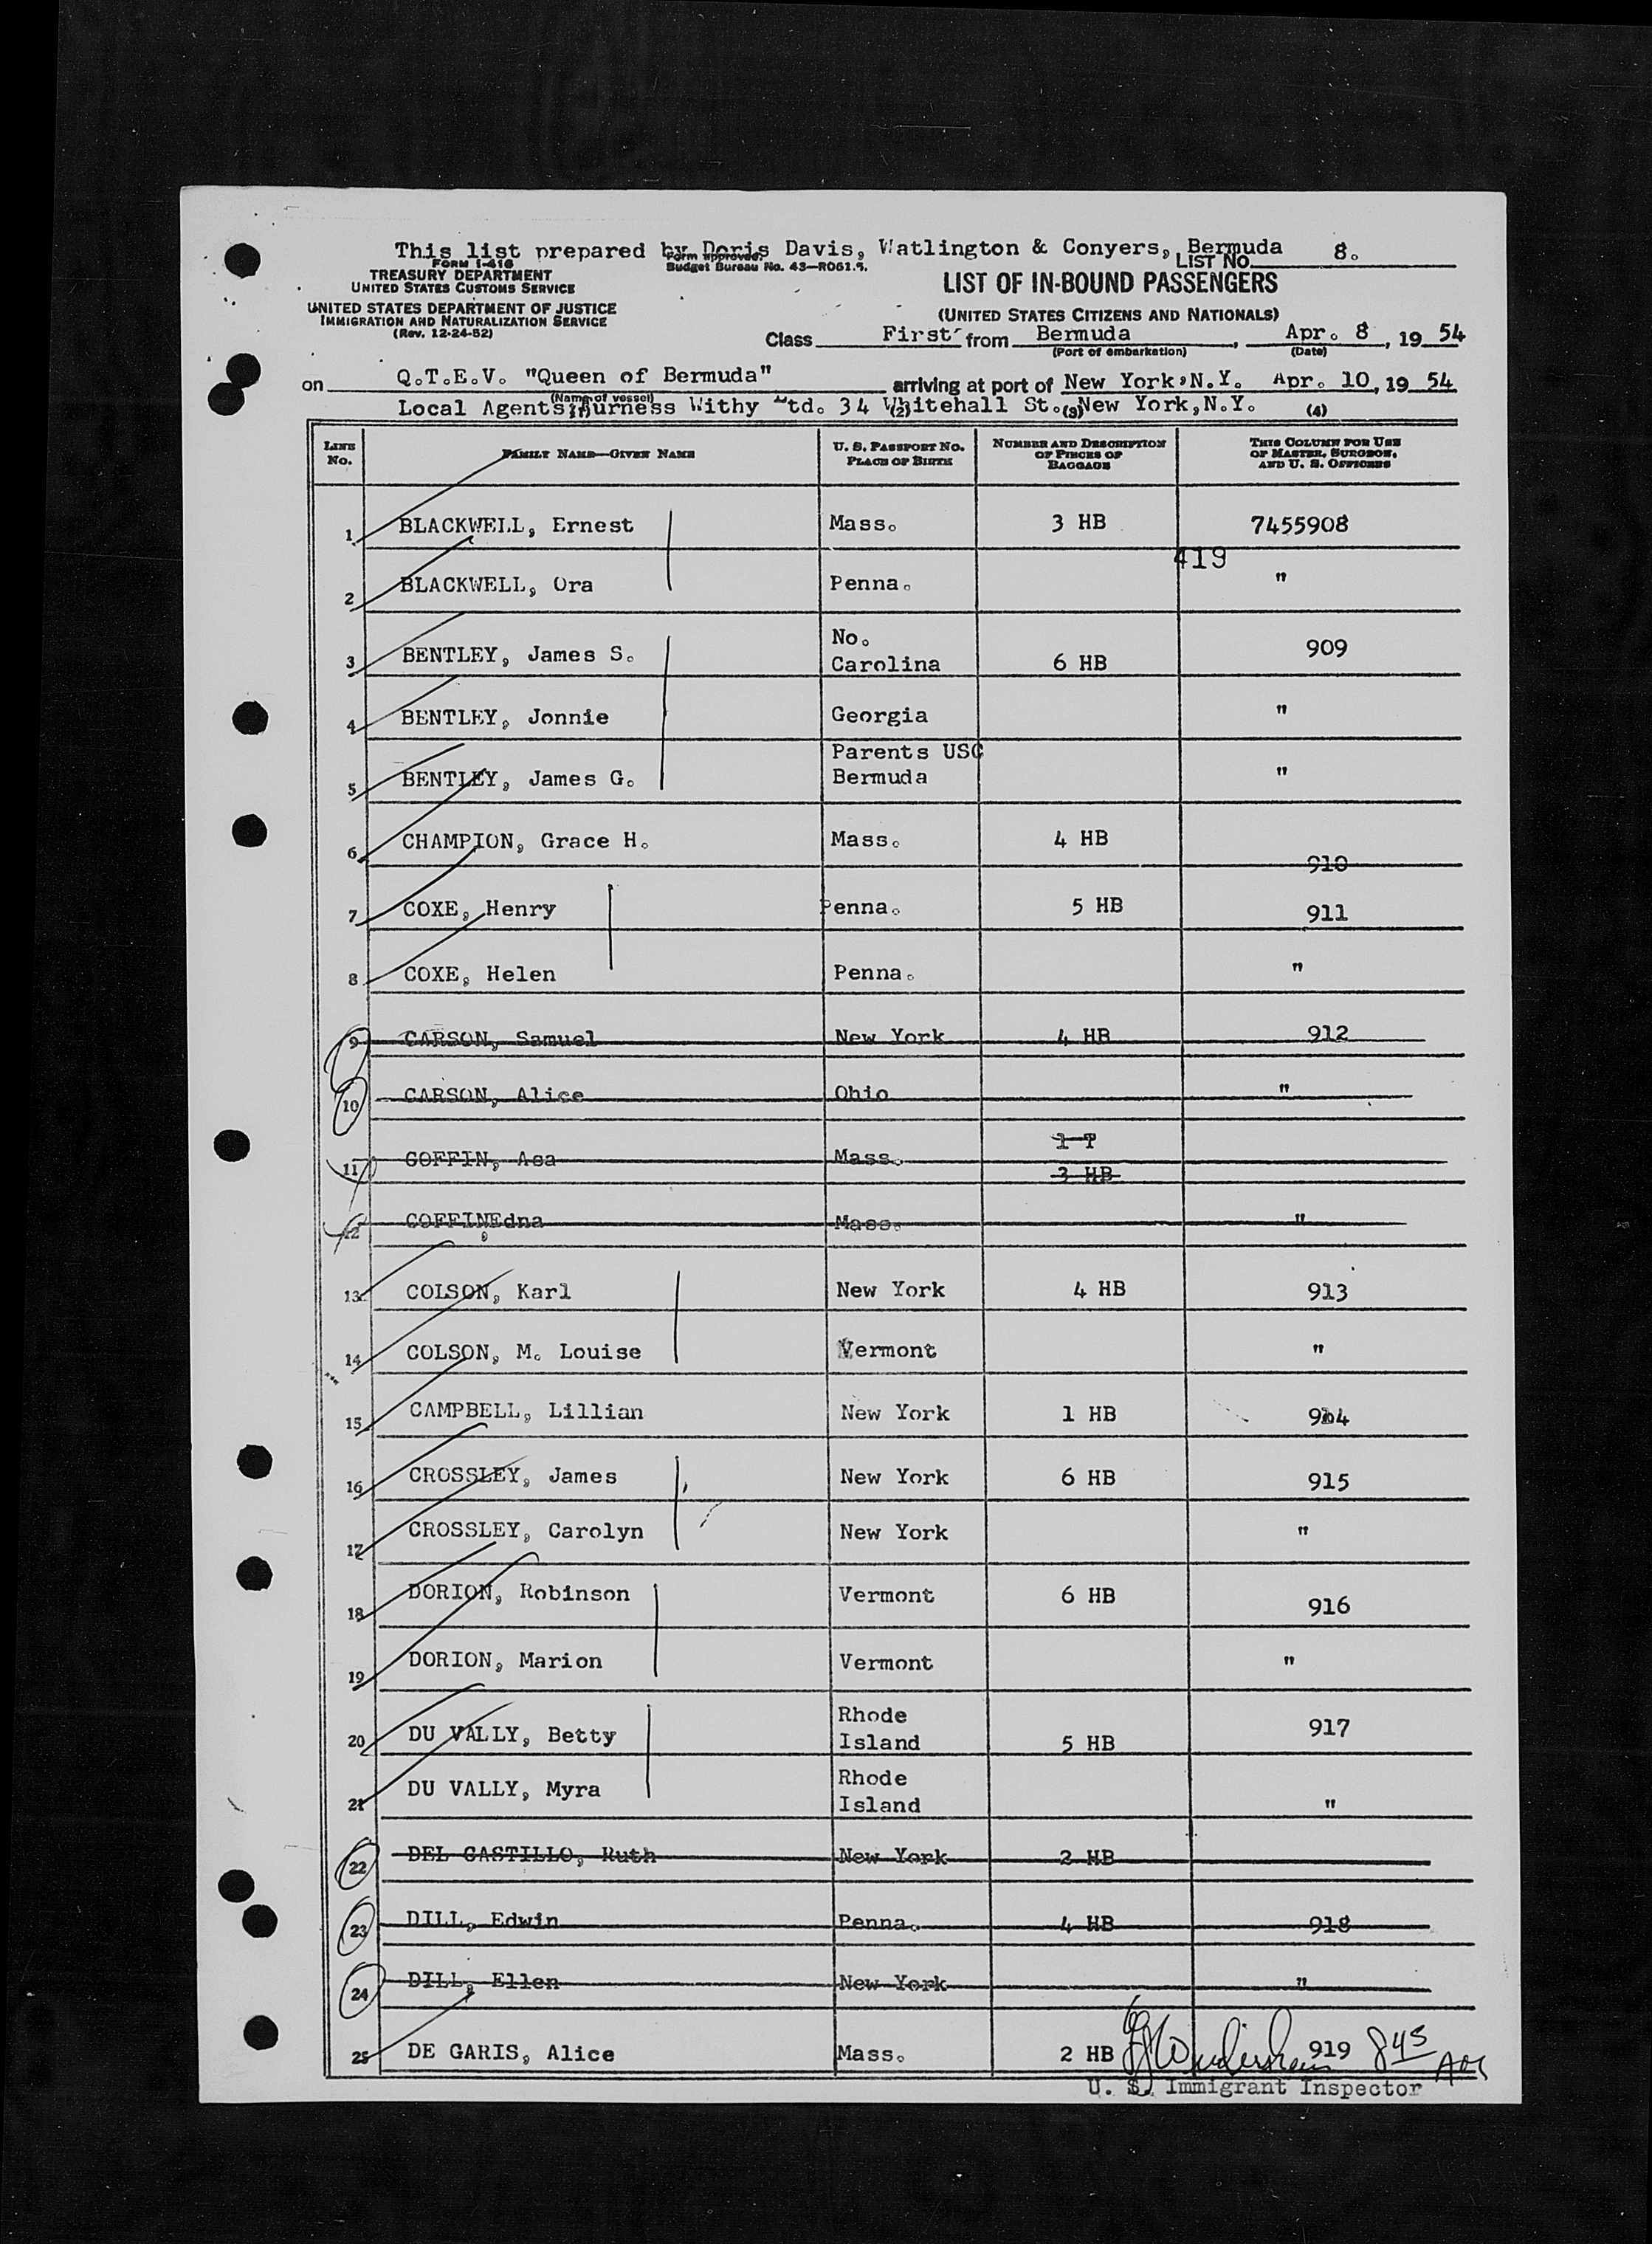 This list prepared by Doris Davis, Watlington & Conyers, Bermuda
FORM I-416
Form approved.
Budget Bureau No. 43—R061.9.
LIST NO. 8.
TREASURY DEPARTMENT
UNITED STATES CUSTOMS SERVICE
LIST OF IN-BOUND PASSENGERS
UNITED STATES DEPARTMENT OF JUSTICE
IMMIGRATION AND NATURALIZATION SERVICE
(Rev. 12-24-52)
(UNITED STATES CITIZENS AND NATIONALS)
Class First from Bermuda, Apr. 8, 19 54
(Port of embarkation) (Date)
on Q.T.E.V. "Queen of Bermuda" arriving at port of New York, N.Y. Apr. 10, 19 54
(Name of vessel)
Local Agents: Furness Withy Ltd. 34 Whitehall St. New York, N.Y.
(2) (3) (4)
LINE No. FAMILY NAME—GIVEN NAME U. S. PASSPORT NO. PLACE OF BIRTH NUMBER AND DESCRIPTION OF PIECES OF BAGGAGE THIS COLUMN FOR USE OF MASTER, SURGEON, AND U. S. OFFICERS
1 BLACKWELL, Ernest Mass. 3 HB 7455908
419
2 BLACKWELL, Ora Penna. "
3 BENTLEY, James S. No. Carolina 6 HB 909
4 BENTLEY, Jonnie Georgia "
5 BENTLEY, James G. Parents USC Bermuda "
6 CHAMPION, Grace H. Mass. 4 HB 910
7 COXE, Henry Penna. 5 HB 911
8 COXE, Helen Penna. "
9 CARSON, Samuel New York 4 HB 912
10 CARSON, Alice Ohio "
11 COFFIN, Asa Mass. 1 T 3 HB
12 COFFIN, Edna Mass. "
13 COLSON, Karl New York 4 HB 913
14 COLSON, M. Louise Vermont "
15 CAMPBELL, Lillian New York 1 HB 914
16 CROSSLEY, James New York 6 HB 915
17 CROSSLEY, Carolyn New York "
18 DORION, Robinson Vermont 6 HB 916
19 DORION, Marion Vermont "
20 DU VALLY, Betty Rhode Island 5 HB 917
21 DU VALLY, Myra Rhode Island "
22 DEL CASTILLO, Ruth New York 2 HB
23 DILL, Edwin Penna. 4 HB 918
24 DILL, Ellen New York "
25 DE GARIS, Alice Mass. 2 HB 919 845
U. S. Immigrant Inspector